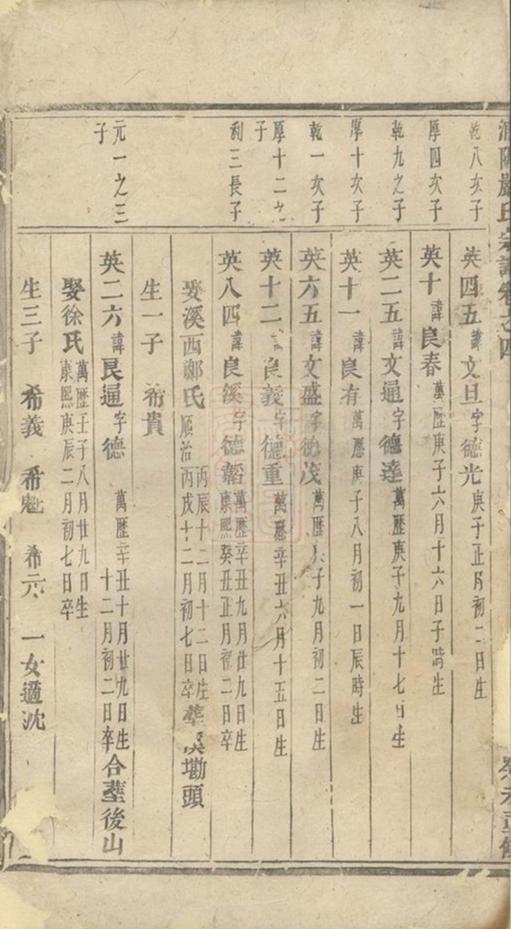 氏宗譜卷之四
乾八次子
英四五諱文旦字德光庚子正月初二日生
厚四次子
英十諱良春萬歷庚子六月十六日子時生
乾九之子
英二五諱文通字德達萬歷庚子九月十七日生
厚十次子
英十一諱良有萬歷庚子八月初一日辰時生
乾一次子
英六五諱文盛字德茂萬歷庚子九月初二日生
厚十二之子
英十二諱良義字德重萬歷辛丑六月十五日生
利三長子
英八四諱良溪字德韜萬歷辛丑九月廿九日生
康熙癸丑正月初二日卒
娶溪西鄭氏丙辰十二月十二日生
順治丙戌十二月初七日卒葬溪墈頭
生一子 希貴
元一之三子
英二六諱良通字德萬歷辛丑十月廿九日生
十二月初二日卒合塟後山
娶徐氏萬歷壬子八月廿九日生
康熙庚辰二月初七日卒
生三子 希義 希魁 希元 一女適沈